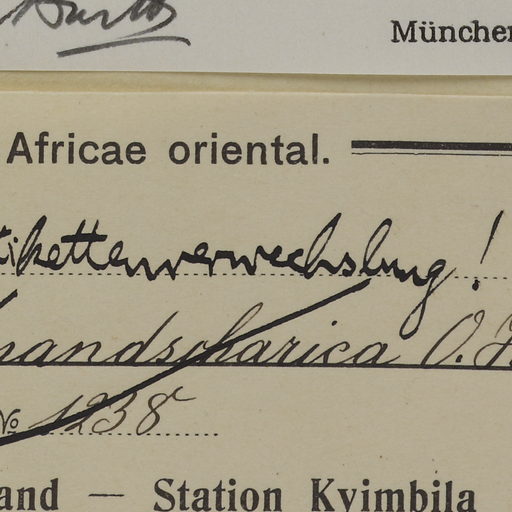 Münche
Africae oriental.
tikettenverwechslung!
andscharica O.
No 1238
and — Station Kyimbila